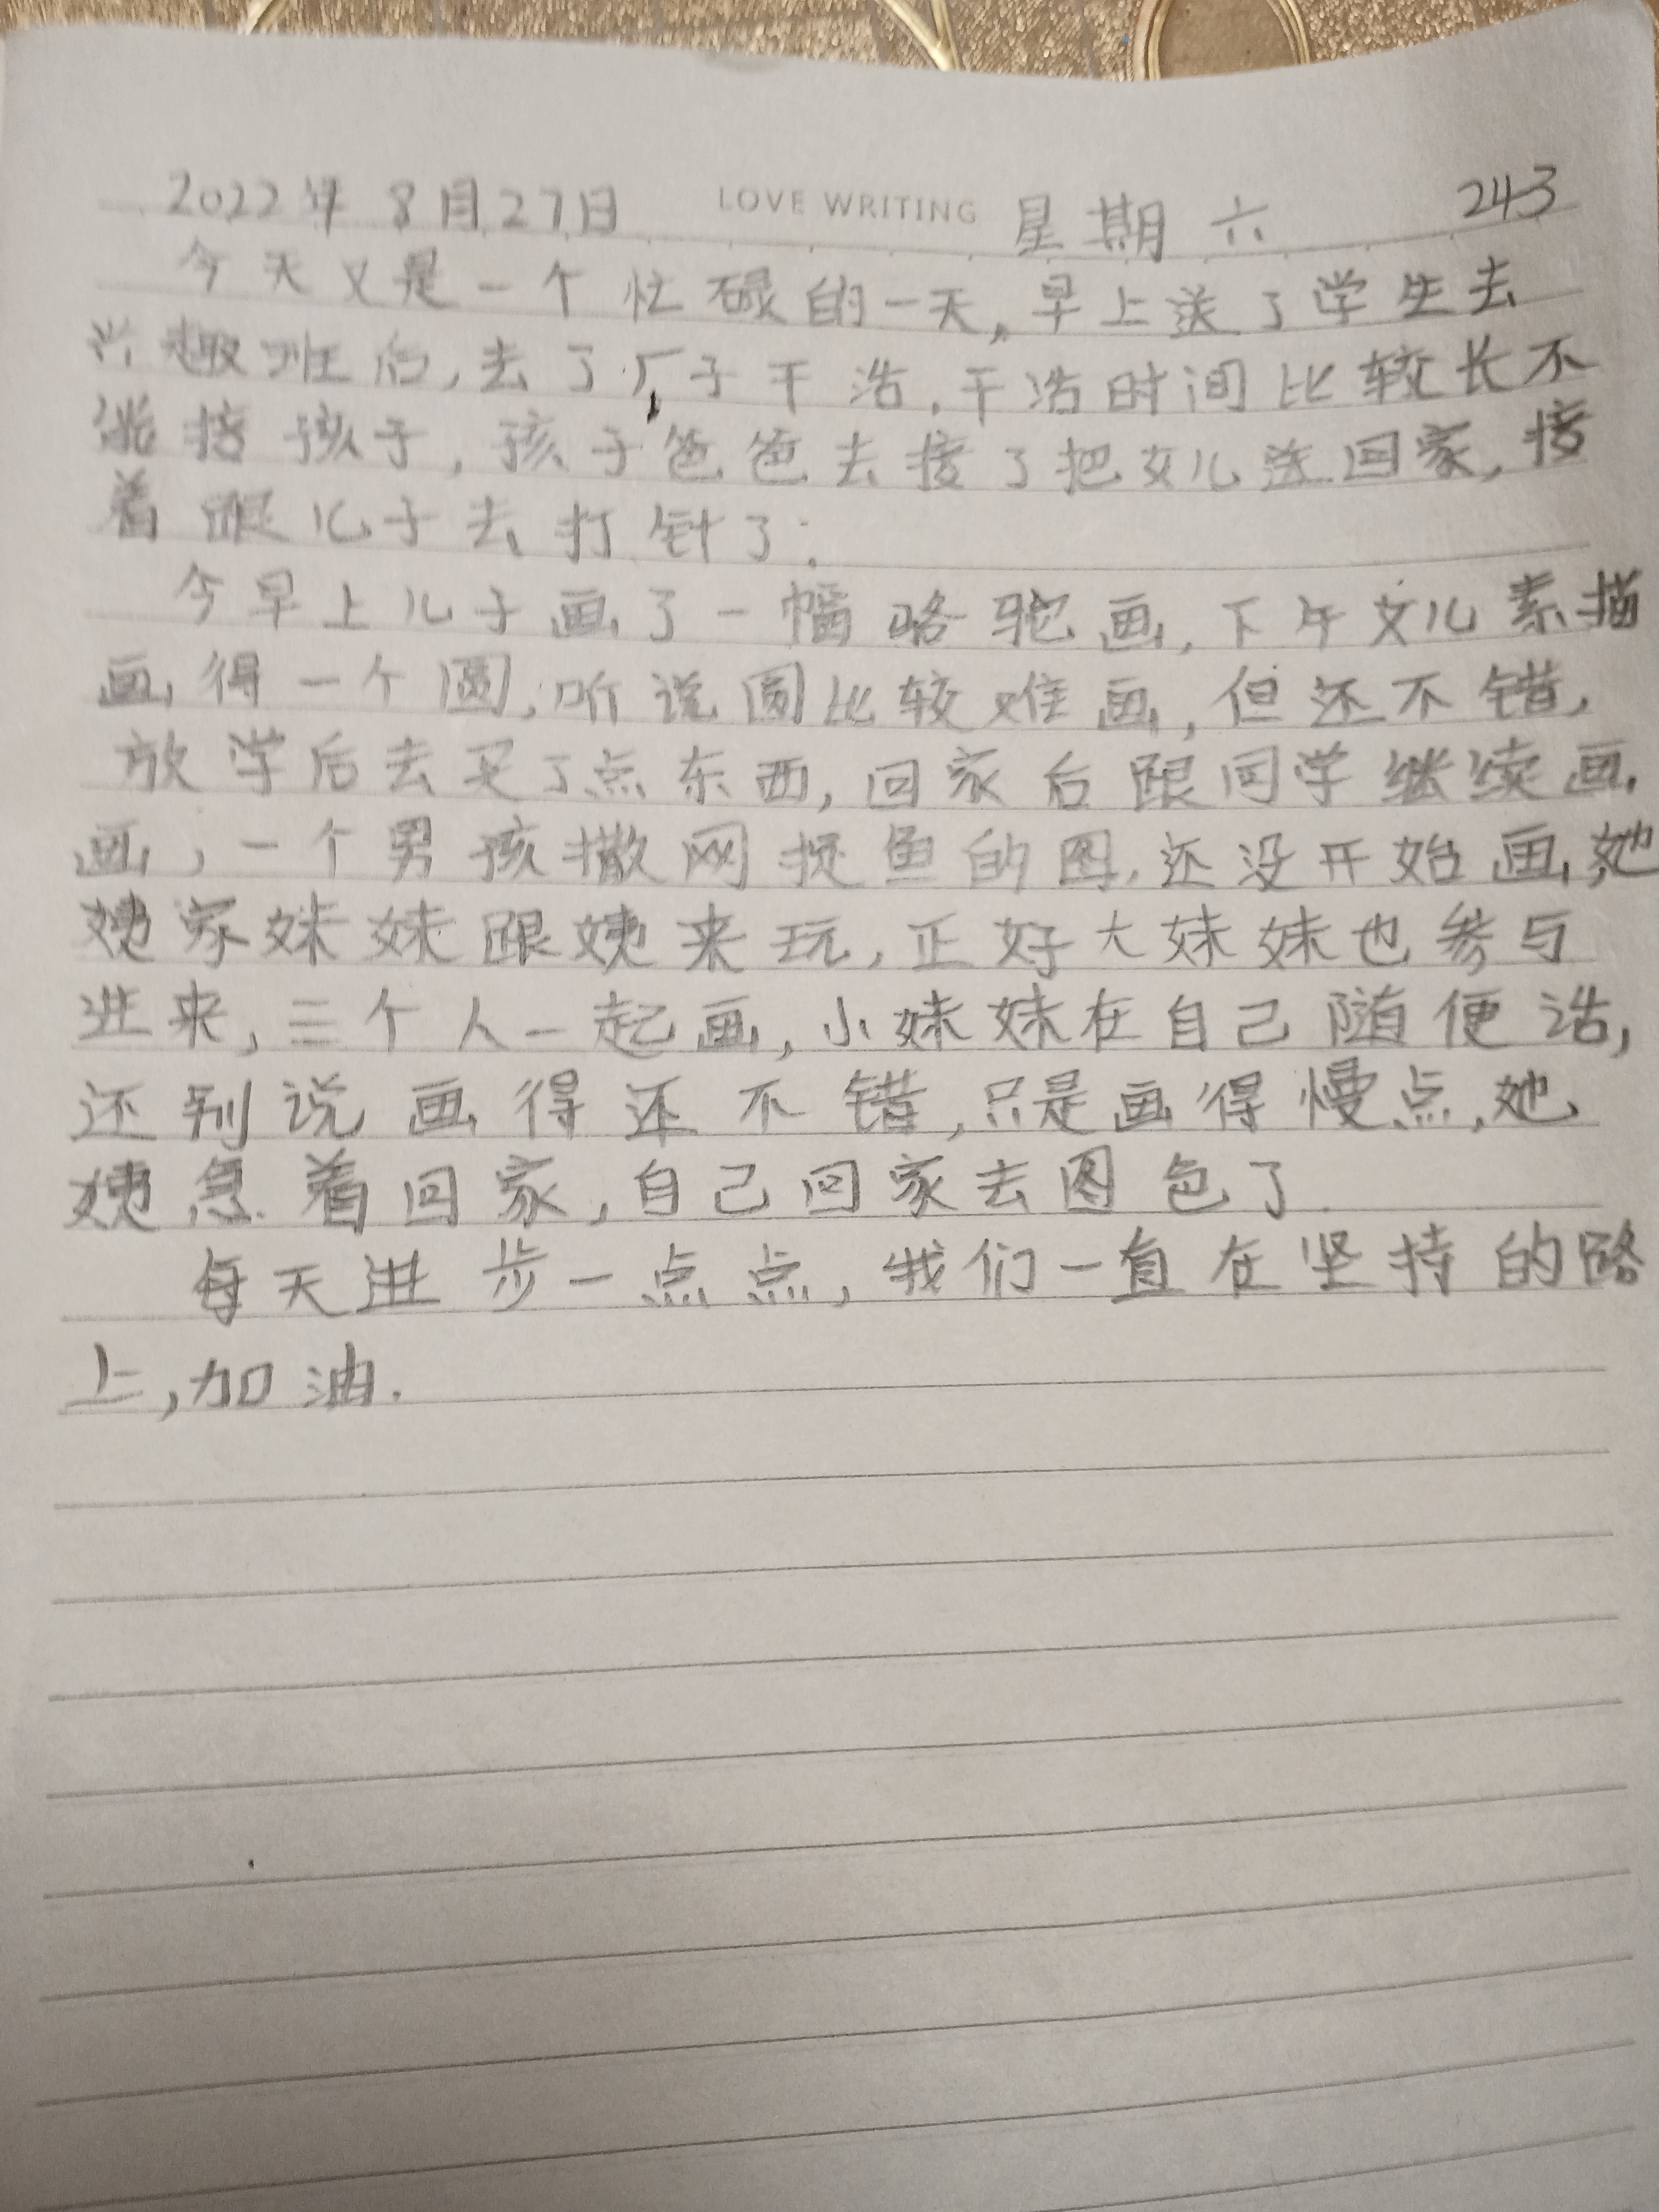 2022年8月27日 LOVE WRITING 星期六 243
今天又是一个忙碌的一天,早上送了学生去
兴趣班后,去了厂子干活,干活时间比较长不
能接孩子,孩子爸爸去接了把女儿送回家,接
着跟儿子去打针了.
今早上儿子画了一幅骆驼画,下午女儿素描
画得一个圆,听说圆比较难画,但还不错,
放学后去买了点东西,回家后跟同学继续画
画,一个男孩撒网捉鱼的图,还没开始画,她
姨家妹妹跟姨来玩,正好大妹妹也参与
进来,三个人一起画,小妹妹在自己随便活,
还别说画得还不错,只是画得慢点,她
姨急着回家,自己回家去图色了.
每天进步一点点,我们一直在坚持的路
上,加油.